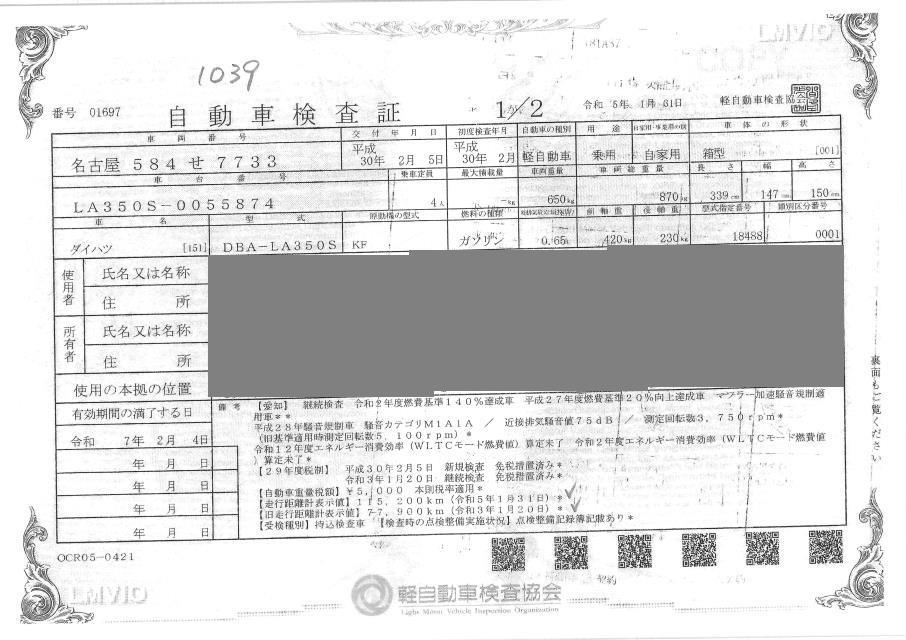 1039
番号 01697
自動車検査証
1/2
令和 5年 1月 31日
軽自動車検査協会
車両番号
交付年月日
初度検査年月
自動車の種別
用途
自家用・事業用の別
車体の形状
名古屋 584 せ 7733
平成 30年 2月 5日
平成 30年 2月
軽自動車
乗用
自家用
箱型 [001]
車台番号
乗車定員
最大積載量
車両重量
車両総重量
長さ
幅
高さ
LA350S-0055874
4人
-kg
650kg
870kg
339cm
147cm
150cm
車名
型式
原動機の型式
燃料の種類
前軸重
後軸重
型式指定番号
類別区分番号
ダイハツ [151]
DBA-LA350S
KF
ガソリン
0.65
420kg
230kg
18488
0001
使用者
氏名又は名称
住所
所有者
氏名又は名称
住所
使用の本拠の位置
有効期間の満了する日
令和 7年 2月 4日
年 月 日
年 月 日
年 月 日
年 月 日
備考
【愛知】 継続検査 令和2年度燃費基準140%達成車 平成27年度燃費基準20%向上達成車 マフラー加速騒音規制適
用車**
平成28年騒音規制車 騒音カテゴリM1A1A / 近接排気騒音値75dB / 測定回転数3,750rpm*
(旧基準適用時測定回転数5,100rpm)*
令和12年度エネルギー消費効率(WLTCモード燃費値)算定未了 令和2年度エネルギー消費効率(WLTCモード燃費値
)算定未了*
【29年度税制】 平成30年2月5日 新規検査 免税措置済み*
令和3年1月20日 継続検査 免税措置済み*
【自動車重量税額】¥5,000 本則税率適用*
【走行距離計表示値】115,200km(令和5年1月31日)*
【旧走行距離計表示値】77,900km(令和3年1月20日)*
【受検種別】持込検査車 【検査時の点検整備実施状況】点検整備記録簿記載あり*
裏面もご覧ください
OCR05-0421
軽自動車検査協会
Light Motor Vehicle Inspection Organization